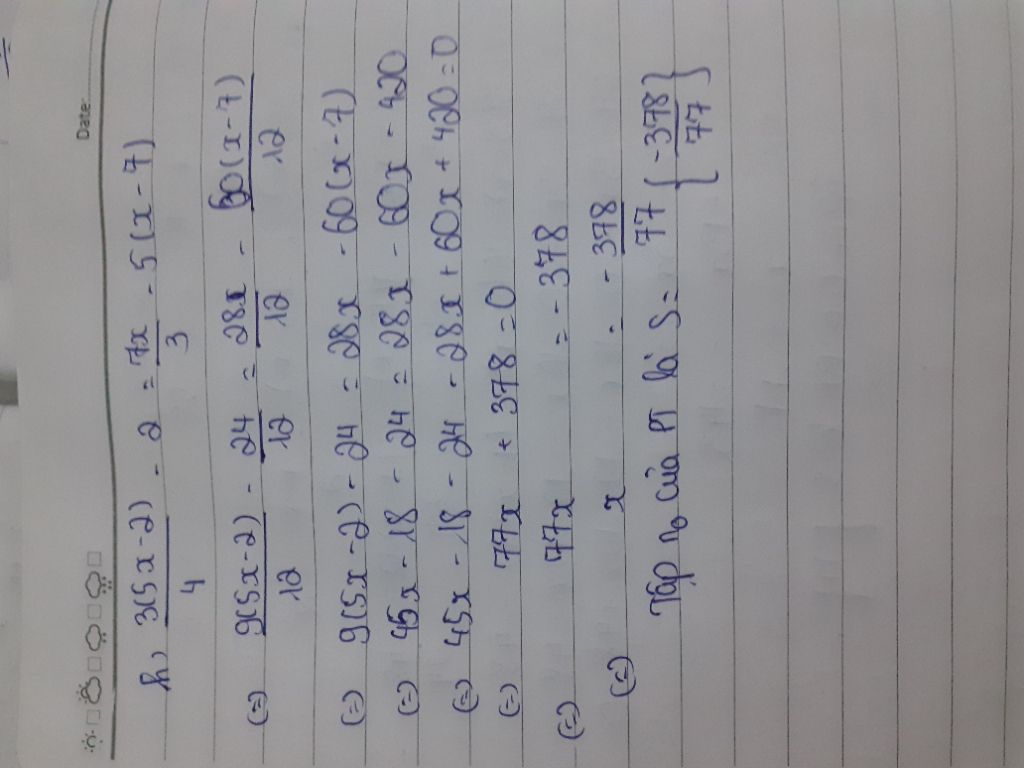 Date:
h, 3(5x-2)/4 - 2 = 7x/3 - 5(x-7)
(=) 9(5x-2)/12 - 24/12 = 28x/12 - 60(x-7)/12
(=) 9(5x-2) - 24 = 28x - 60(x-7)
(=) 45x - 18 - 24 = 28x - 60x - 420
(=) 45x - 18 - 24 - 28x + 60x + 420 = 0
(=) 77x + 378 = 0
(=) 77x = - 378
(=) x = - 378/77
Tập no của PT là S = {-378/77}